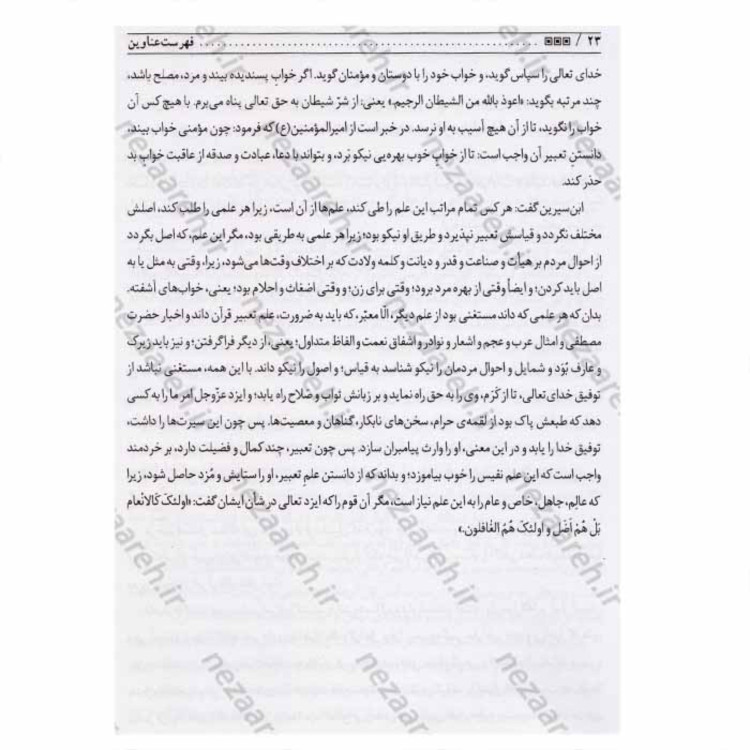 ۲۳ / فهرست عناوین
خدای تعالی را سپاس گوید، و خواب خود را با دوستان و مؤمنان گوید. اگر خوابِ پسندیده بیند و مرد، مصلح باشد،
چند مرتبه بگوید: «اعوذ بالله من الشیطان الرجیم.» یعنی: از شرّ شیطان به حق تعالی پناه می‌برم. با هیچ کس آن
خواب را نگوید، تا از آن هیچ آسیب به او نرسد. در خبر است از امیرالمؤمنین(ع) که فرمود: چون مؤمنی خواب بیند،
دانستنِ تعبیر آن واجب است: تا از خوابِ خوب بهره‌یی نیکو بَرد، و بتواند با دعا، عبادت و صدقه از عاقبت خوابِ بد
حذر کند.
ابن‌سیرین گفت: هر کس تمام مراتب این علم را طی کند، علم‌ها از آن است، زیرا هر علمی را طلب کند، اصلش
مختلف نگردد و قیاسش تعبیر نپذیرد و طریق او نیکو بود؛ زیرا هر علمی به طریقی بود، مگر این علم، که اصل بگردد
از احوال مردم بر هیأت و صناعت و قدر و دیانت و کلمه ولادت که بر اختلاف وقت‌ها می‌شود، زیرا، وقتی به مثل یا به
اصل باید کردن؛ و ایضاً وقتی از بهره مرد برود؛ وقتی برای زن؛ و وقتی اضغاث و احلام بود؛ یعنی، خواب‌های آشفته.
بدان که هر علمی که داند مستغنی بود از علم دیگر، الّا معبّر، که باید به ضرورت، علم تعبیر قرآن داند و اخبار حضرتِ
مصطفی و امثال عرب و عجم و اشعار و نوادر و اشفاق نعمت و الفاظ متداول؛ یعنی، از دیگر فراگرفتن؛ و نیز باید زیرک
و عارف بُوَد و شمایل و احوال مردمان را نیکو شناسد به قیاس؛ و اصول را نیکو داند. با این همه، مستغنی نباشد از
توفیق خدای‌تعالی، تا از کَرَم، وی را به حق راه نماید و بر زبانش ثواب و صَلاح راه یابد؛ و ایزد عزّوجل آمر ما را به کسی
دهد که طبعش پاک بود از لقمه‌ی حرام، سخن‌های نابکار، گناهان و معصیت‌ها. پس چون این سیرت‌ها را داشت،
توفیق خدا را یابد و در این معنی، او را وارث پیامبران سازد. پس چون تعبیر، چند کمال و فضیلت دارد، بر خردمند
واجب است که این علم نفیس را خوب بیاموزد؛ و بداند که از دانستن علمِ تعبیر، او را ستایش و مُزد حاصل شود، زیرا
که عالِم، جاهل، خاص و عام را به این علم نیاز است، مگر آن قوم را که ایزد تعالی در شأن ایشان گفت: «اولئک کَالانعام
بَلْ هُمْ اَضَل و اولئک هُمُ الغافلون.»
nezaareh.ir